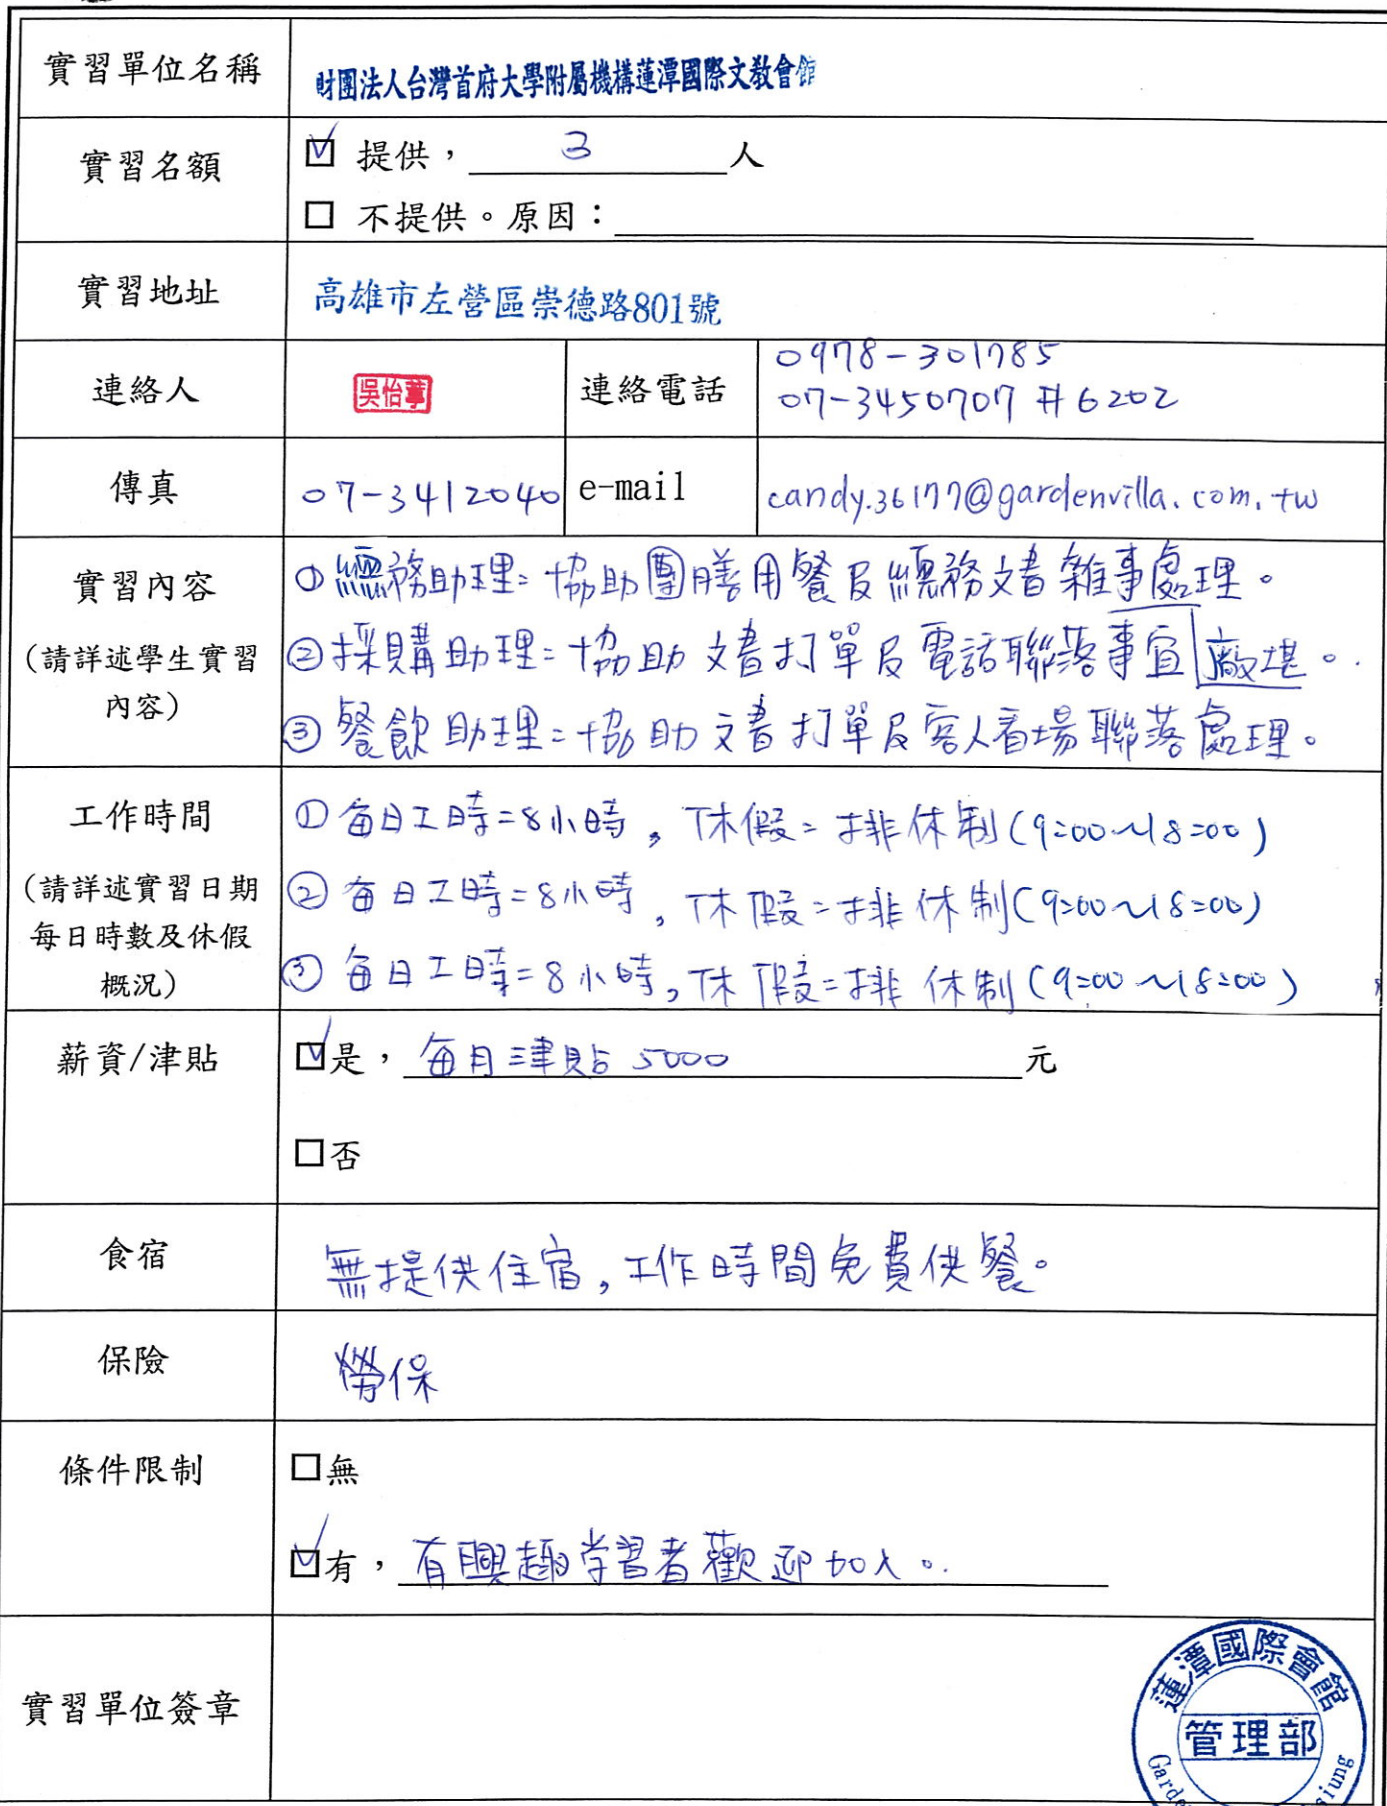 實習單位名稱
財團法人台灣首府大學附屬機構蓮潭國際文教會館
實習名額
☑ 提供，3人
□ 不提供。原因：
實習地址
高雄市左營區崇德路801號
連絡人
吳怡葶
連絡電話
0978-301785
07-3450707 #6202
傳真
07-3412040
e-mail
candy.36177@gardenvilla.com.tw
實習內容
(請詳述學生實習
內容)
①總務助理：協助團膳用餐及總務文書雜事處理。
②採購助理：協助文書打單及電話聯落事宜廠堪。
③餐飲助理：協助文書打單及客人看場聯落處理。
工作時間
(請詳述實習日期
每日時數及休假
概況)
①每日工時=8小時，休假=排休制(9:00~18:00)
②每日工時=8小時，休假=排休制(9:00~18:00)
③每日工時=8小時，休假=排休制(9:00~18:00)
薪資/津貼
☑是，每月津貼5000元
□否
食宿
無提供住宿，工作時間免費供餐。
保險
勞保
條件限制
□無
☑有，有興趣学習者歡迎加入。
實習單位簽章
蓮潭國際會館
管理部